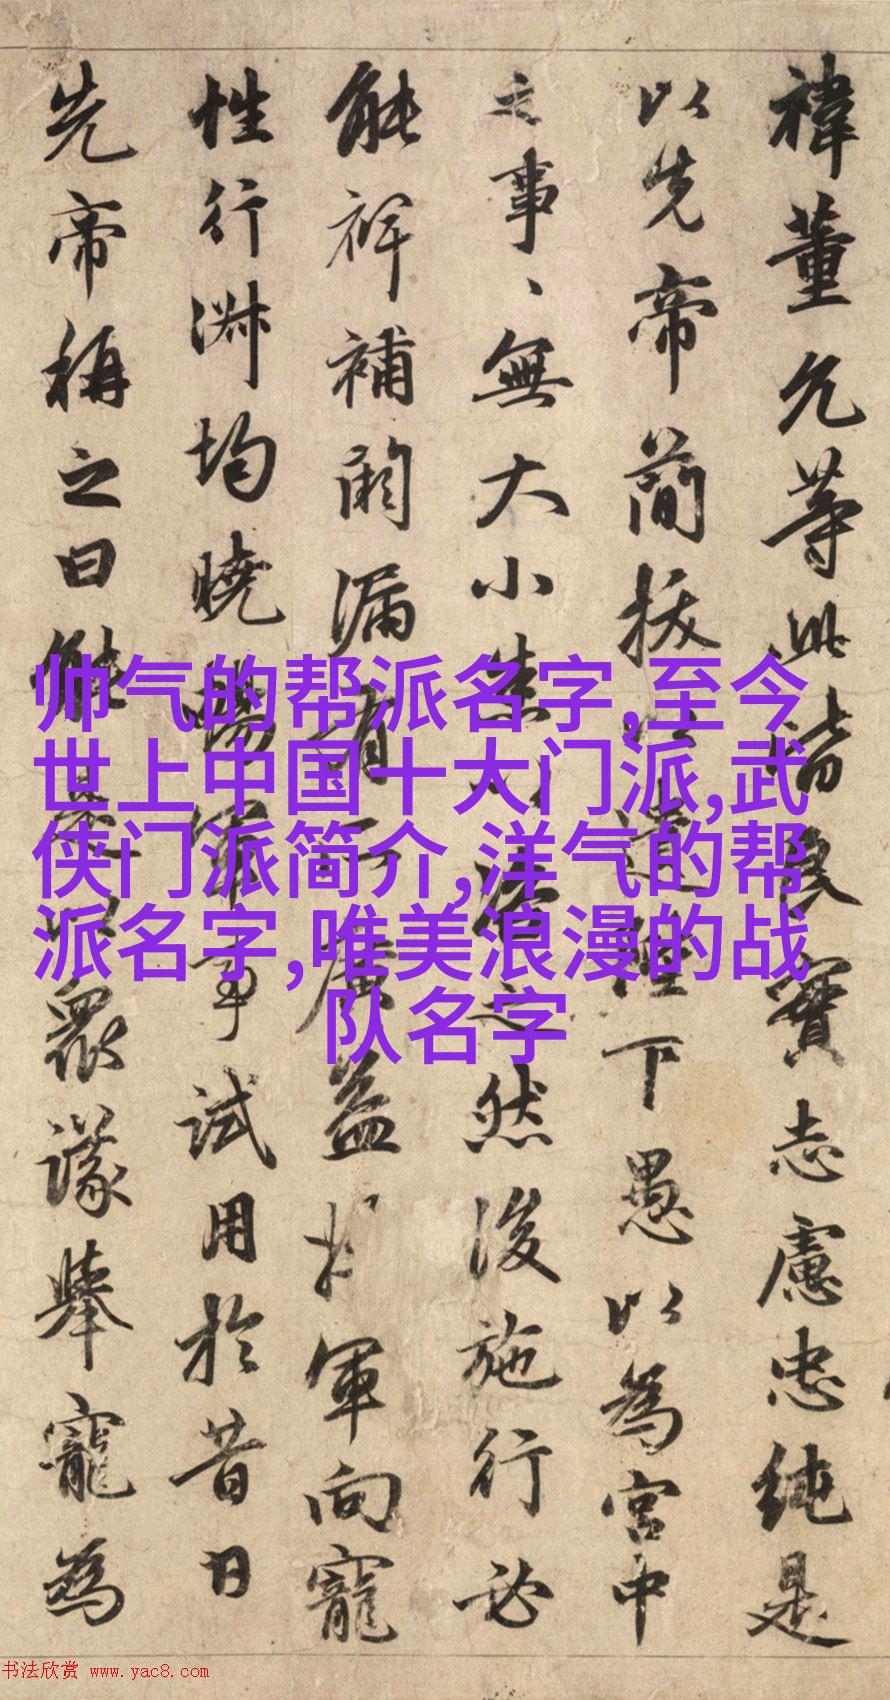 禕董允等此皆良實志慮忠純是
以先帝簡拔以遺陛下愚以為宮中
之事、無大小悉以咨之然後施行必
能裨補闕漏有所廣益將軍向寵
性行淑均曉暢軍事試用於昔日
先帝稱之曰能是以衆議舉寵為
帅气的帮派名字,至今
世上中国十大门派,武
侠门派简介,洋气的帮
派名字,唯美浪漫的战
队名字
书法欣赏 www.yac8.com